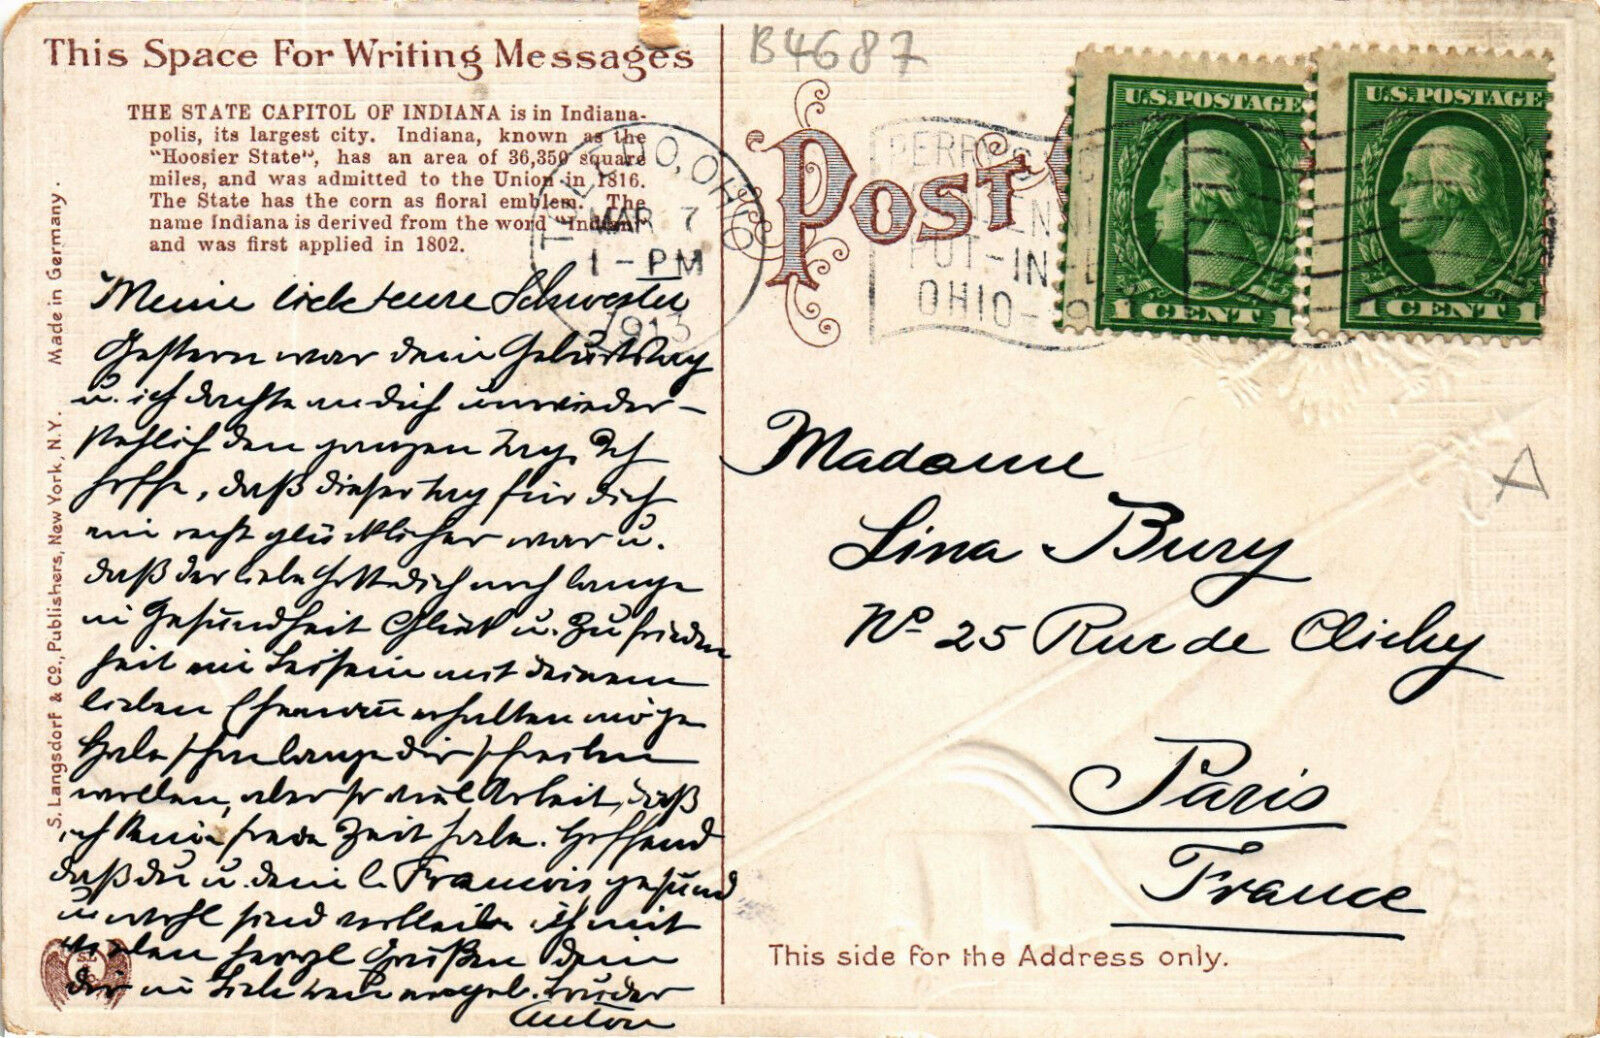 This Space For Writing Messages
THE STATE CAPITOL OF INDIANA is in Indiana-
polis, its largest city. Indiana, known as the
"Hoosier State", has an area of 36,350 square
miles, and was admitted to the Union in 1816.
The State has the corn as floral emblem. The
name Indiana is derived from the word "Indian"
and was first applied in 1802.
S. Langsdorf & Co., Publishers, New York, N.Y. Made in Germany.
Meine liebe teure Schwester
Gestern war dein Geburtstag
u. ich dachte an dich unwieder-
stehlich den ganzen Tag. Ich
hoffe, daß dieser Tag für dich
ein recht glücklicher war u.
daß der liebe Gott dich noch lange
in Gesundheit Glück u. Zufrieden
heit mit deinem
lieben Ehemann erhalten möge
Habe schon lange dir schreiben
wollen, aber so viel Arbeit, daß
ich keine freie Zeit habe. Hoffend
daß du u. dein l. Francois gesund
u. wohl sind verbleibe ich mit
vielen herzl Grüßen dein
dir in Liebe Bruder
Anton
B4687
Post
TOLEDO, OHIO
MAR 7
1-PM
1913
PERRY'S
CENTENNIAL
PUT-IN-BAY
OHIO-1913
U.S. POSTAGE
1 CENT 1
U.S. POSTAGE
1 CENT 1
Madame
Lina Bury
No 25 Rue de Clichy
Paris
France
This side for the Address only.